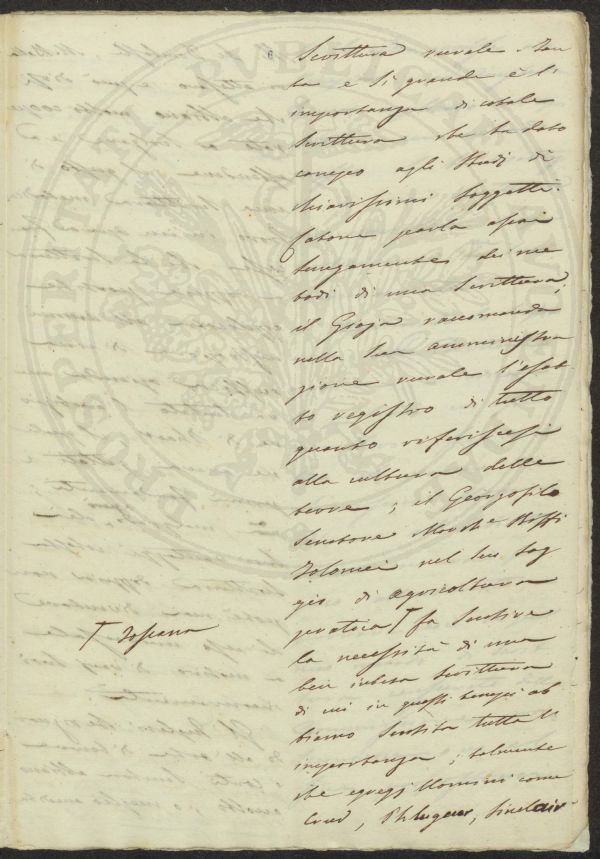 Scrittura rurale. Tan
ta e sì grande è l'
importanza di cotale
Scrittura che ha dato
campo agli Studi di
chiarissimi Soggetti.
Catone parla assai
lungamente dei me
todi di una Scrittura,
il Gioja raccomanda
nella sua amministra
zione rurale l'esat
to registro di tutto
quanto riferiscesi
alla cultura delle
terre; il Georgofilo
Senatore March.e Riffi
Tolomei nel suo Sag
gio di agricoltura
pratica T fa sentire
T Toscana
la necessità di una
ben intesa Scrittura
di cui in questi tempi ab
biamo sentita tutta l'
importanza; talmente
che egregj Uomini come
Crud, Sinclair